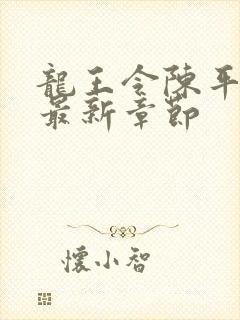 龍王令陳平
最新章節
懷小智